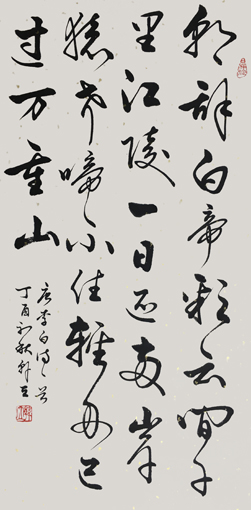 朝辞白帝彩云间千
里江陵一日还两岸
猿声啼不住轻舟已
过万重山
唐李白诗一首
丁酉初秋